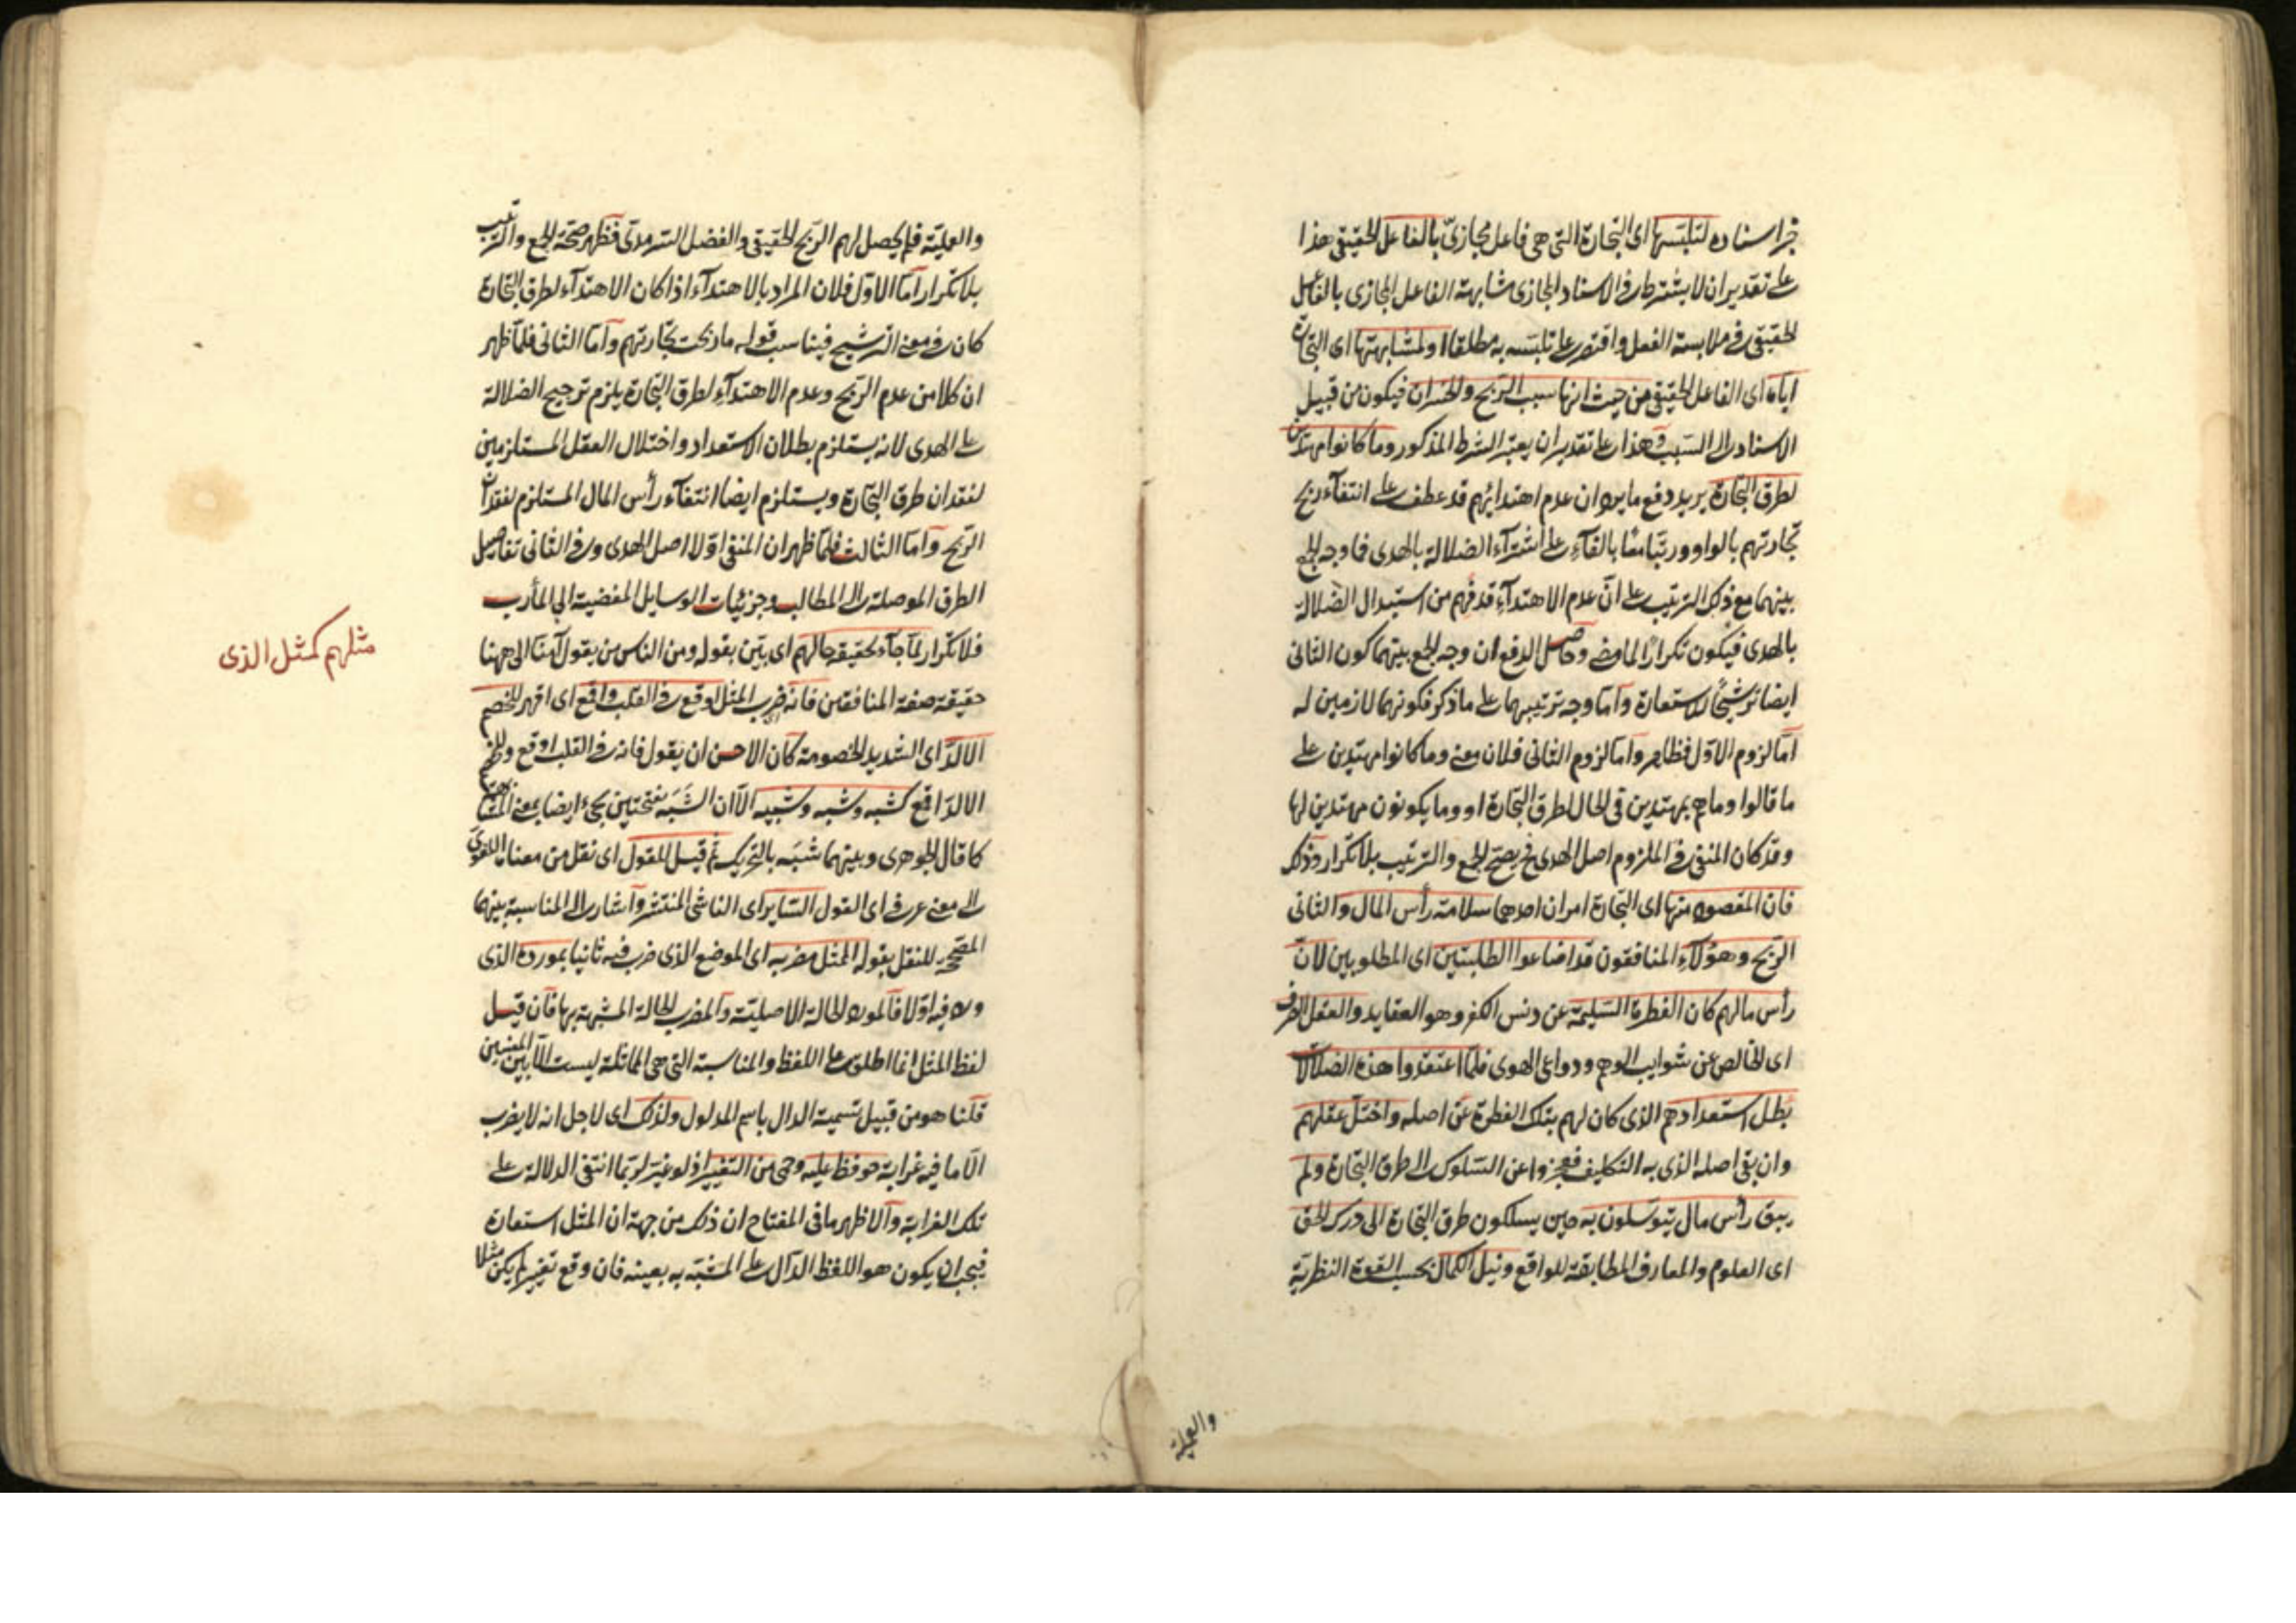 جز اسناده لتلبسها اى التجارة التى هى فاعل مجازىّ بالفاعل الحقيقى هذا
على تقدير ان لا يشترط فى الاسناد المجازى مشابهة الفاعل المجازى بالفاعل
الحقيقى فى ملابسة الفعل واقتصر على تلبسه به مطلقا او لمشابهتها اى التجارة
اياه اى الفاعل الحقيقى من حيث انها سبب الربح والخسران فيكون من قبيل
الاسناد الى السبب وهذا على تقدير ان يعتبر الشرط المذكور وما كانوا مهتدين
لطرق التجارة يريد دفع ما يرد ان عدم اهتدائهم قد عطف على انتفاء ربح
تجارتهم بالواو ورتبا معًا بالفاء على اشتراء الضلالة بالهدى فما وجه الجمع
بينهما مع ذلك الترتيب على انّ عدم الاهتداء قد فهم من استبدال الضلالة
بالهدى فيكون تكرارًا لما مضى وحاصل الدفع ان وجه الجمع بينهما كون الثانى
ايضا ترشيحًا للاستعارة وامّا وجه ترتيبهما على ما ذكر فكونهما لازمين له
امّا لزوم الاوّل فظاهر وامّا لزوم الثانى فلان معنى وما كانوا مهتدين على
ما قالوا وما هم بمهتدين فى الحال لطرق التجارة او وما يكونون مهتدين لها
وقد كان المنفى فى الملزوم اصل الهدى فح يصحّ الجمع والترتيب بلا تكرار وذلك
فان المقصود منها اى التجارة امران احدهما سلامة رأس المال والثانى
الربح وهؤلاء المنافقون قد اضاعوا الطلبتين اى المطلوبين لانّ
رأس مالهم كان الفطرة السّليمة عن دنس الكفر وهو العقايد والعقل الصرف
اى الخالص عن شوايب الوهم ودواعى الهوى فلمّا اعتقدوا هذه الضلالات
بطل استعدادهم الذى كان لهم بتلك الفطرة عن اصله واختلّ عقلهم
وان بقى اصله الذى به التكليف فعجزوا عن السّلوك الى طرق التجارة ولم
يبق رأس مال يتوسّلون به حين يسلكون طرق التجارة الى درك الحق
اى العلوم والمعارف المطابقة للواقع ونيل الكمال بحسب القوة النظريّة
والعمليّة
والعمليّة فلم يحصل لهم الربح الحقيقى والفضل السّرمدىّ فظهر صحّة الجمع والترتيب
بلا تكرار امّا الاوّل فلان المراد بالاهتداء اذا كان الاهتداء لطرق التجارة
كان فى معنى الترشيح فيناسب قوله ما ربحت تجارتهم وامّا الثانى فلمّا ظهر
ان كلا من عدم الربح وعدم الاهتداء لطرق التجارة يلزم ترجيح الضلالة
على الهدى لانه يستلزم بطلان الاستعداد واختلال العقل المستلزمين
لفقدان طرق التجارة ويستلزم ايضا انتفاء رأس المال المستلزم لفقدان
الربح وامّا الثالث فلمّا ظهر ان المنفى اوّلا اصل الهدى وفى الثانى تفاصيل
الطرق الموصلة الى المطالب وجزئيات الوسايل المفضية الى المآرب
فلا تكرار لمّا جاء بحقيقة حالهم اى بيّن بقوله ومن الناس من يقول آمنّا الى ههنا
مثلهم كمثل الذى
حقيقة صفة المنافقين فانه ضرب المثل اوقع فى القلب واقمع اى اقهر للخصم
الالدّ اى الشديد الخصومة كان الاحسن ان يقول فانه فى القلب اوقع وللخصم
الالدّ اقمع كشبه وشبه وشبيه الاّ ان الشَبَه بفتحتين يجىء ايضا بمعنى المشابهة
كما قال الجوهرى وبينهما شبَه بالتحريك ثمّ قيل للقول اى نقل من معناه اللغوىّ
الى معنى عرفى اى القول السّاير اى الفاشى المنتشر واشار الى المناسبة بينهما
المصحّحة للنقل بقوله الممثل مضربه اى الموضع الذى ضرب فيه ثانيا بمورده الذى
ورد فيه اوّلا فالمورد الحالة الاصليّة والمضرب الحالة المشبهة بها فان قيل
لفظ المثل انما اطلق على اللفظ والمناسبة التى هى المماثلة ليست الاّ بين المعنيين
قلنا هو من قبيل تسمية الدال باسم المدلول ولذلك اى لاجل انه لا يضرب
الاّ ما فيه غرابة حوفظ عليه وحمى من التغيير اذ لو غيّر لربّما انتفى الدلالة على
تلك الغرابة والاظهر ما فى المفتاح ان ذلك من جهة ان المثل استعارة
فيجب ان يكون هو اللفظ الدّال على المشبّه به بعينه فان وقع تغيير لم يكن مثلا